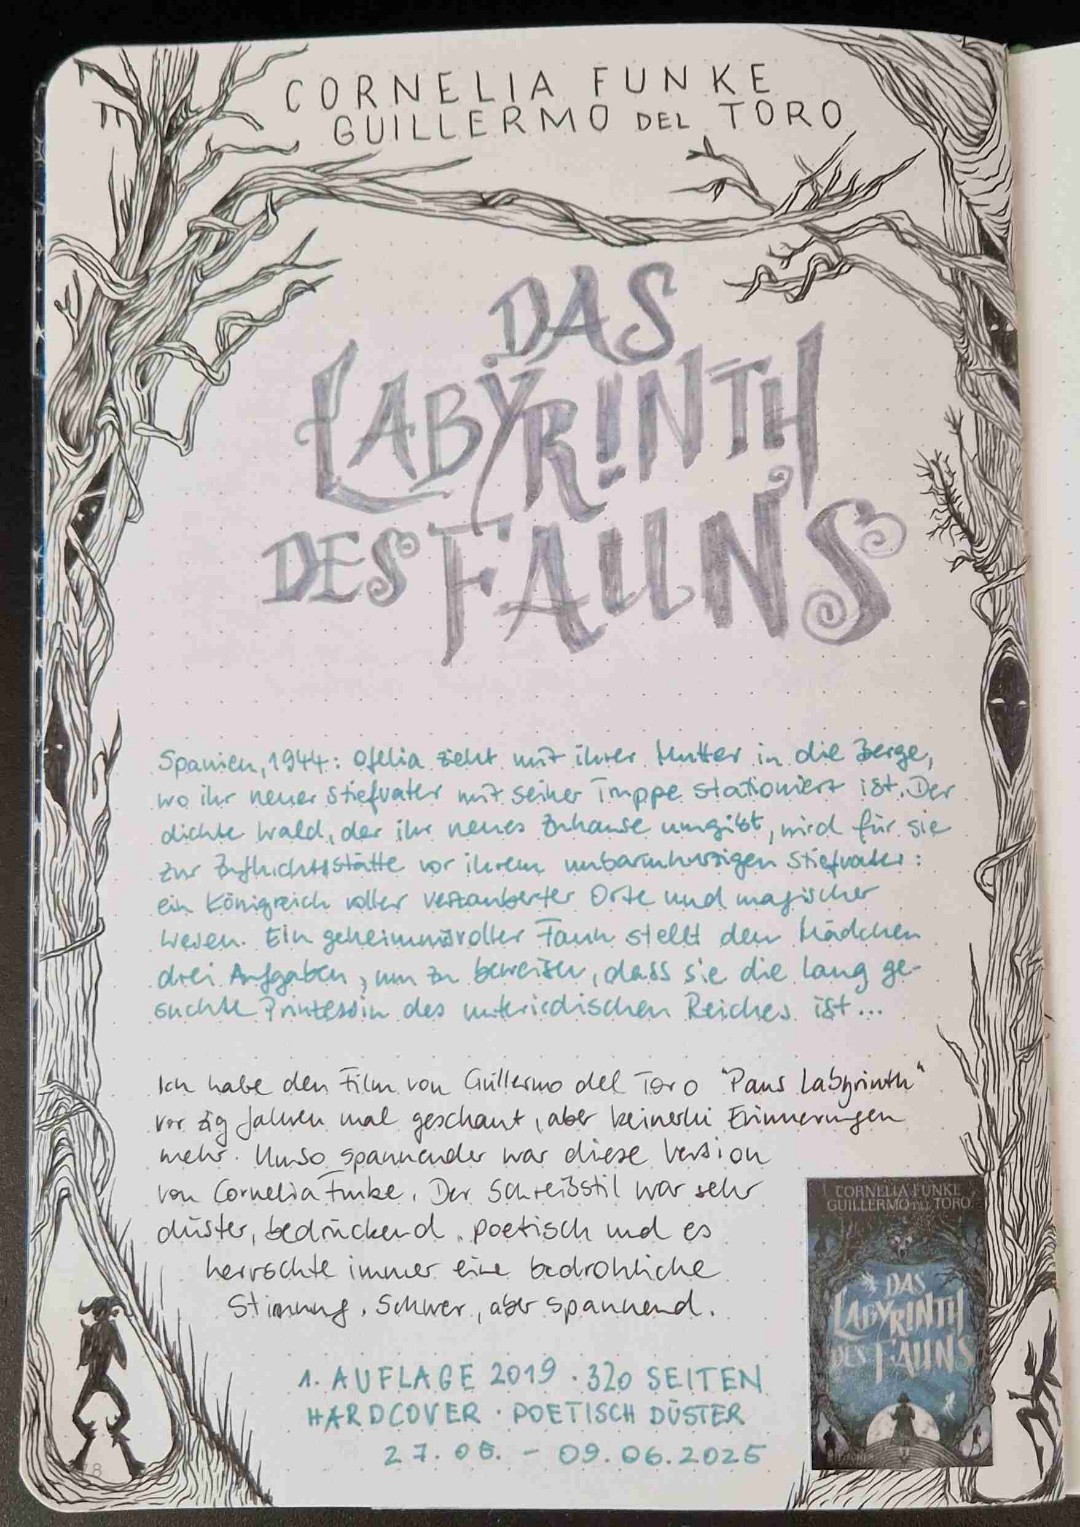 CORNELIA FUNKE
GUILLERMO DEL TORO
DAS
LABYRINTH
DES FAUNS
Spanien, 1944: Ofelia zieht mit ihrer Mutter in die Berge,
wo ihr neuer Stiefvater mit seiner Truppe stationiert ist. Der
dichte Wald, der ihr neues Zuhause umgibt, wird für sie
zur Zufluchtsstätte vor ihrem unbarmherzigen Stiefvater:
ein Königreich voller verzauberter Orte und magischer
Wesen. Ein geheimnisvoller Faun stellt dem Mädchen
drei Aufgaben, um zu beweisen, dass sie die lang ge-
suchte Prinzessin des unterirdischen Reiches ist...
Ich habe den Film von Guillermo del Toro "Pans Labyrinth"
vor zig Jahren mal geschaut, aber keinerlei Erinnerungen
mehr. Umso spannender war diese Version
von Cornelia Funke. Der Schreibstil war sehr
düster, bedrückend, poetisch und es
herrschte immer eine bedrohliche
Stimmung. Schwer, aber spannend.
CORNELIA FUNKE
GUILLERMO DEL TORO
DAS
LABYRINTH
DES FAUNS
1. AUFLAGE 2019 · 320 SEITEN
HARDCOVER · POETISCH DÜSTER
27.05. - 09.06.2025
78